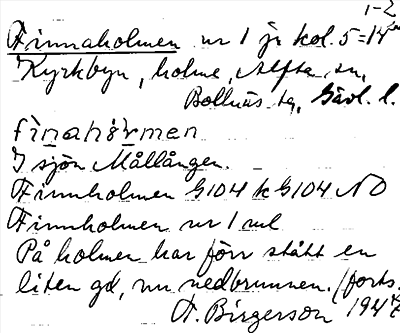 1-2
Finnaholmen nr 1 jr kol. 5=14
Kyrkbyn, holme, Alfta sn,
Bollnäs tg, Gävl. l.
finahårmen
I sjön Mållången.
Finnholmen G104 k G104 NO
Finnholmen nr 1 ml
På holmen har förr stått en
liten gd, nu nedbrunnen. (forts.
A. Birgerson 194